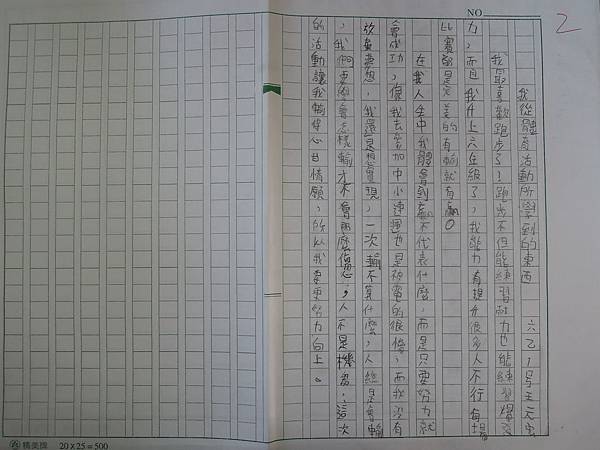 NO.
2
我從體育活動所學到的東西 六乙1号王天
我最喜歡跑步了!跑步不但能練習耐力也能練習爆發
力,而且我升上六年級了,我能力有提升很多人不行每場
比賽都是完美的有輸就有贏。
在我人生中我體會到贏不代表什麼,而是只要努力就
會成功,像我去參加中小連運也是被電的很慘,而我沒有
放棄夢想,我還是想實現,一次輸不算什麼,人總是會輸
,我們要學會怎樣輸才不會那麼傷心,人不是機器,這次
的活動讓我輸得心甘情願,所以我要更努力向上。
精美牌 20x25=500